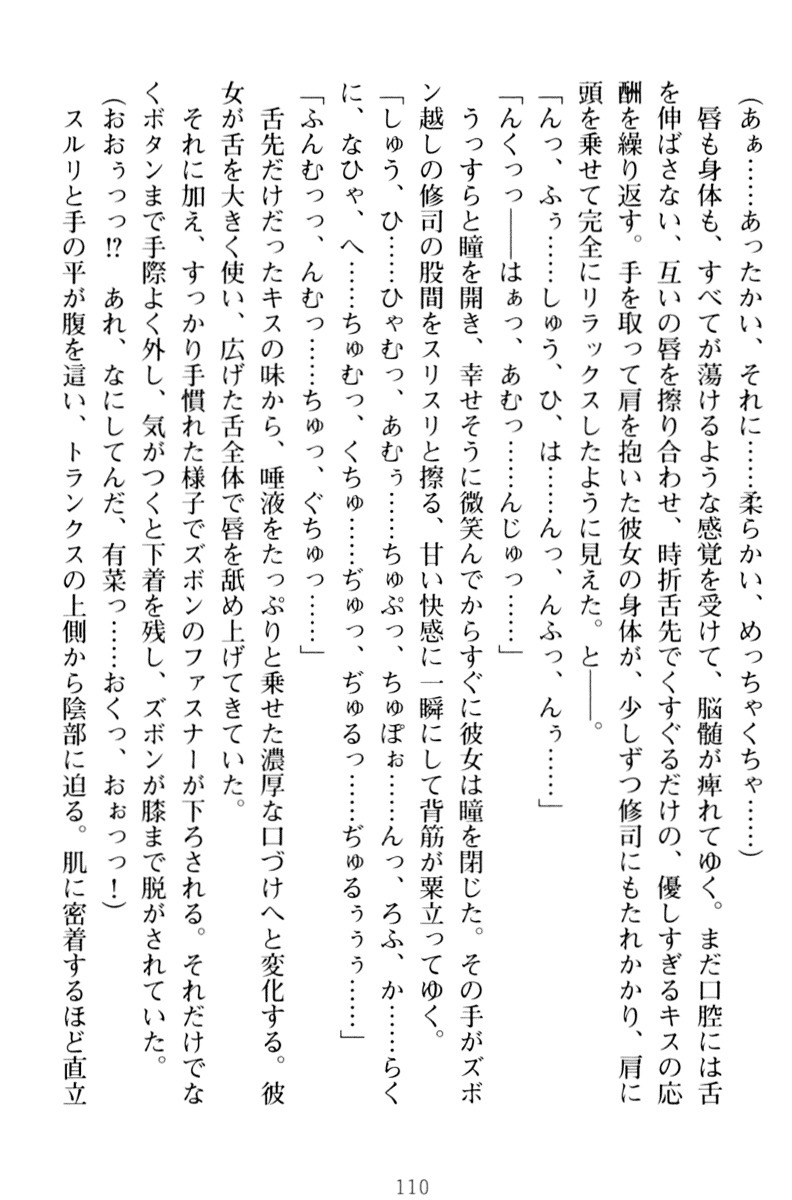 (あぁ……あったかい、それに……柔らかい、めっちゃくちゃ……)
唇も身体も、すべてが蕩けるような感覚を受けて、脳髄が痺れてゆく。まだ口腔には舌
を伸ばさない、互いの唇を擦り合わせ、時折舌先でくすぐるだけの、優しすぎるキスの応
酬を繰り返す。手を取って肩を抱いた彼女の身体が、少しずつ修司にもたれかかり、肩に
頭を乗せて完全にリラックスしたように見えた。と――。
「んっ、ふぅ……しゅう、ひ、は……んっ、んふっ、んぅ……」
「んくっっ――はぁっ、あむっ……んじゅっ……」
うっすらと瞳を開き、幸せそうに微笑んでからすぐに彼女は瞳を閉じた。その手がズボ
ン越しの修司の股間をスリスリと擦る、甘い快感に一瞬にして背筋が粟立ってゆく。
「しゅう、ひ……ひゃむっ、あむぅ……ちゅぷっ、ちゅぽぉ……んっ、ろふ、か……らく
に、なひゃ、へ……ちゅむっ、くちゅ……ぢゅっ、ぢゅるっ……ぢゅるぅぅぅ……」
「ふんむっっ、んむっ……ちゅっ、ぐちゅっ……」
舌先だけだったキスの味から、唾液をたっぷりと乗せた濃厚な口づけへと変化する。彼
女が舌を大きく使い、広げた舌全体で唇を舐め上げてきていた。
それに加え、すっかり手慣れた様子でズボンのファスナーが下ろされる。それだけでな
くボタンまで手際よく外し、気がつくと下着を残し、ズボンが膝まで脱がされていた。
(おおぅっっ!? あれ、なにしてんだ、有菜っ……おくっ、おぉっっ!)
スルリと手の平が腹を這い、トランクスの上側から陰部に迫る。肌に密着するほど直立
110